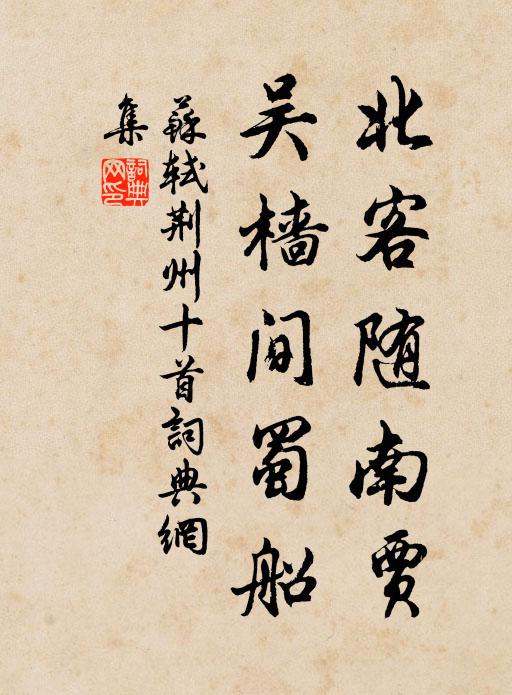 北客随南賈
吴檣間蜀船
蘇軾荆州十首詞典網
集
詞典
网印